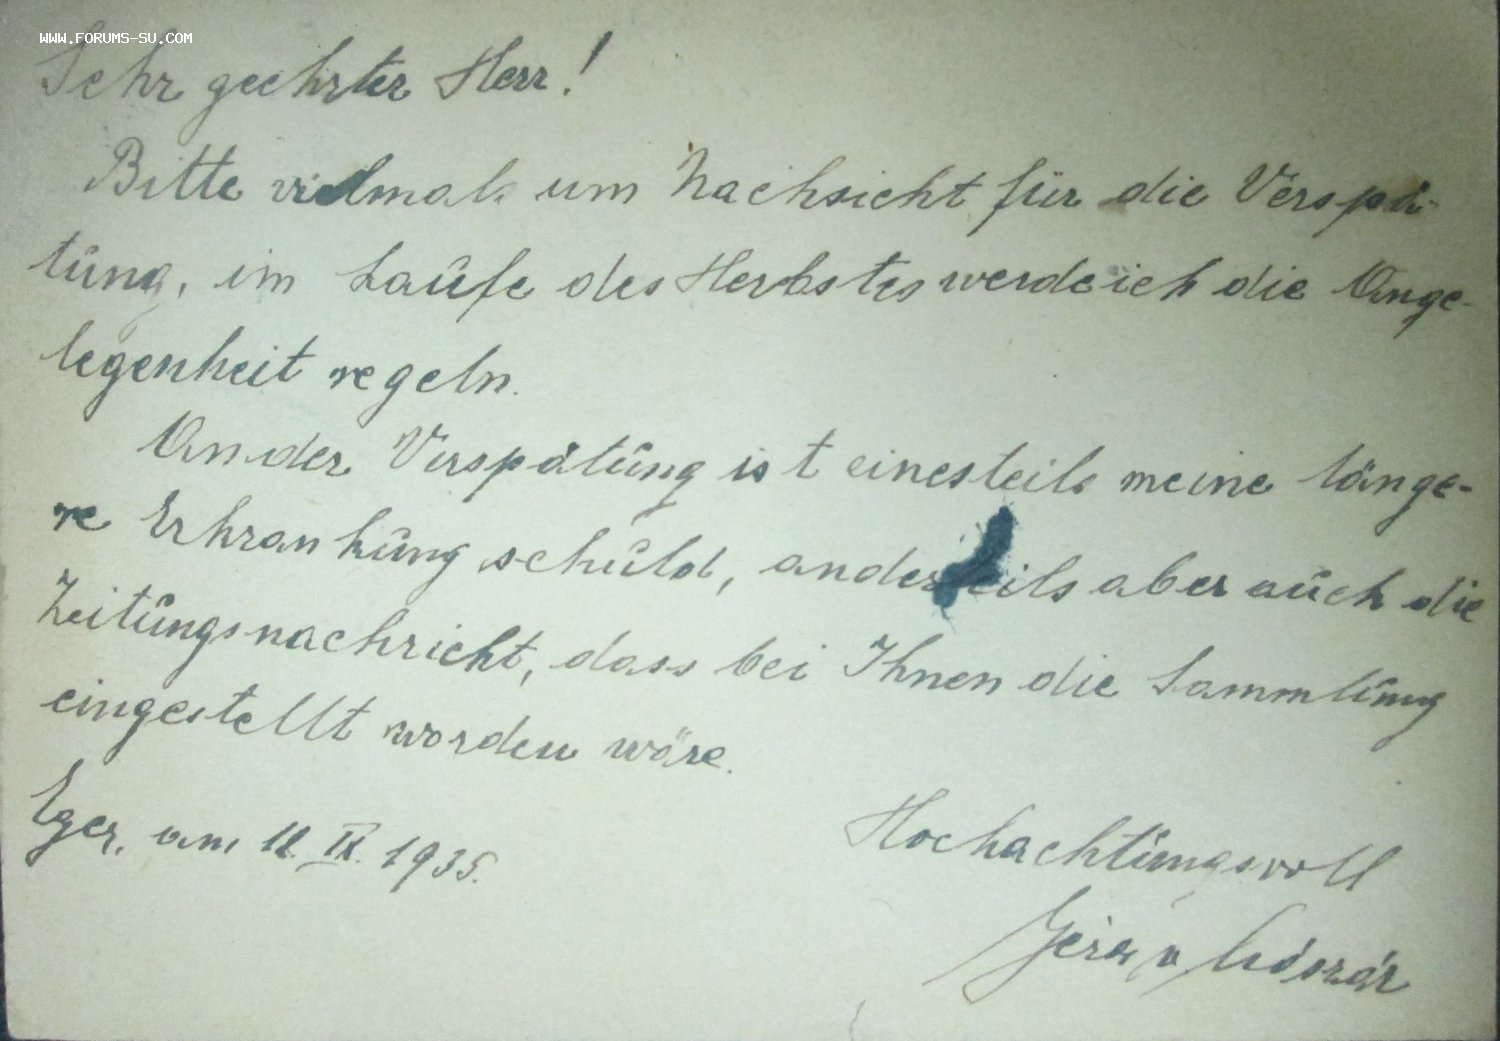 WWW.FORUMS-SU.COM
Sehr geehrter Herr!
Bitte vielmals um Nachsicht für die Verspä-
tung, im Laufe des Herbstes werde ich die Ange-
legenheit regeln.
An der Verspätung ist einesteils meine länge-
re Erkrankung schuld, anderteils aber auch die
Zeitungsnachricht, dass bei Ihnen die Sammlung
eingestellt worden wäre.
Eger, am 11. IX. 1935.
Hochachtungsvoll